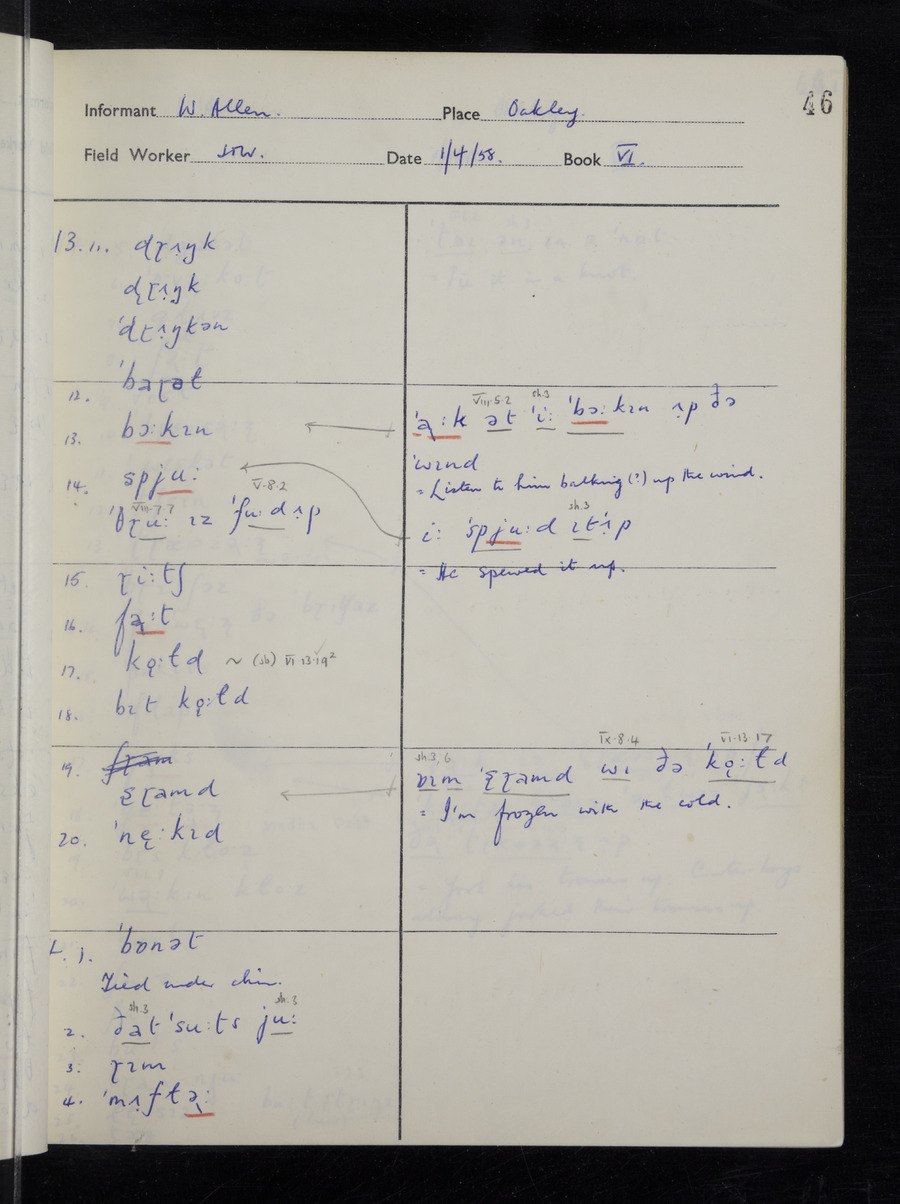 46
Informant W. Allen. Place Oakley.
Field Worker Date 1/4/58. Book VI.
13. 11. dɽʌ̣yk
dɽʌ̣yk
ˈdɽʌ̣ykən
12. ˈbaɽət
13. bɔːkɪn
ˈạːk ət ˈiː ˈbɔːkɪn ʌ̣p ðə
VIII·5·2 sh.3
ˈwɪnd
= Listen to him balking (?) up the wind.
14. spjuː
ˈθɽuː ɪz ˈfuːdʌ̣p
VIII·7·7 V·8·2
iː ˈspjuːd ɪtˈʌ̣p
sh.3
= He spewed it up.
15. ɽiːtʃ
16. fạːt
17. kǫːɫd ~ (sb) VI·13·19²
18. bɪt kǫːɫd
19.
ę̈ɽamd
sh.3,6 IX·8·4 VI·13·17
ɒɪm ˈęɽamd wɪ ðə ˈkǫːɫd
= I'm frozen with the cold.
20. ˈnęːkɪd
1. ˈbɒnət
Tied under chin.
sh.3 sh.3
2. ðat ˈsuːts juː
3. ɽɪm
4. ˈmʌ̣fləː